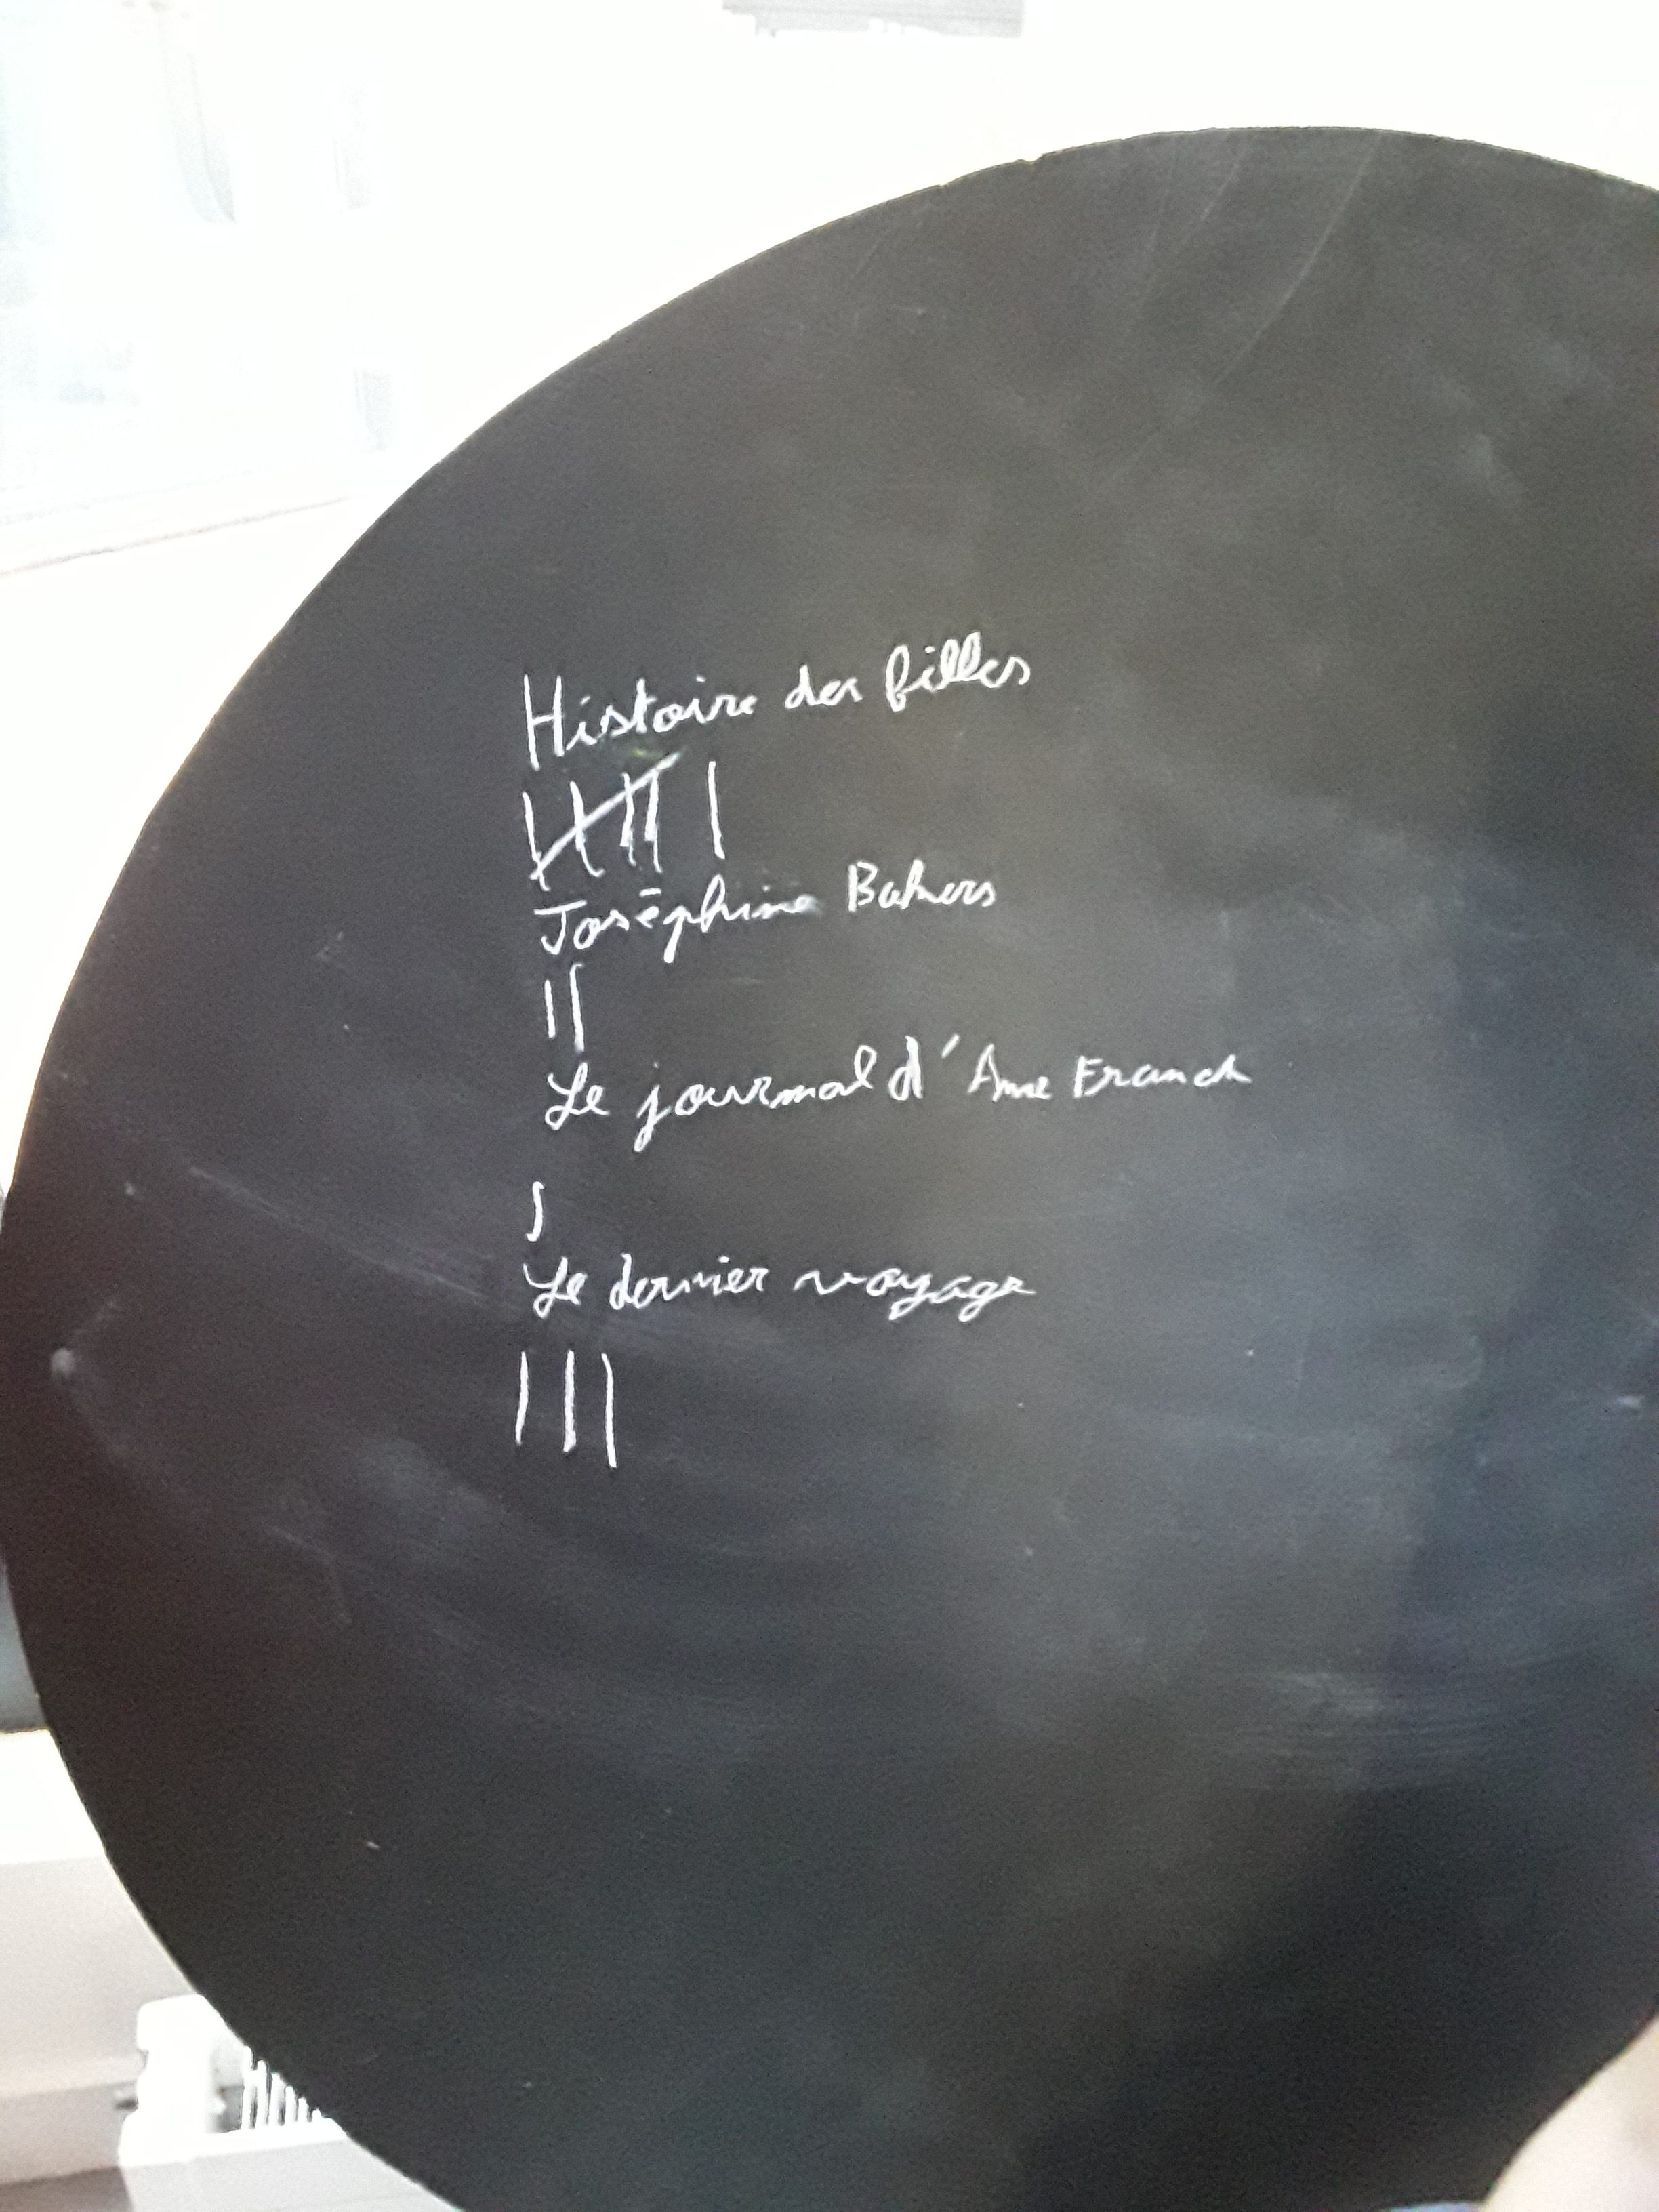 Histoire des filles
Joséphine Bakers
Le journal d'Anne Franck
Le dernier voyage